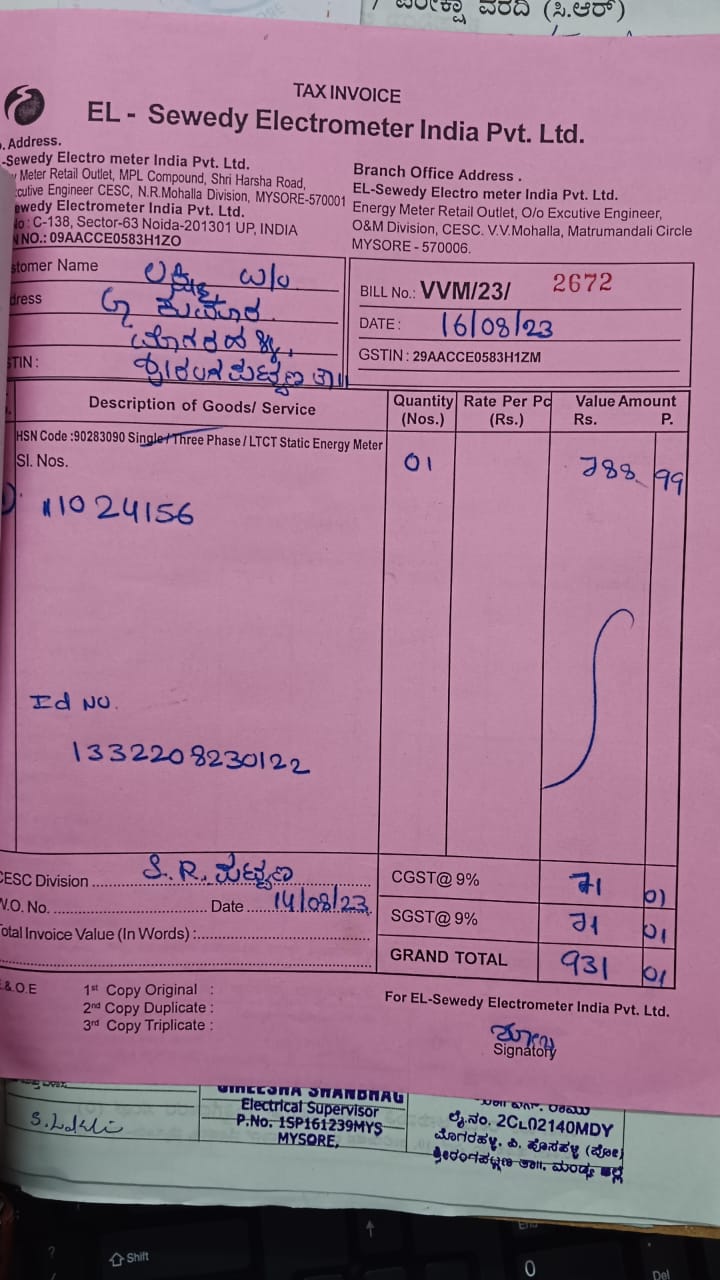 ವರದಿ (ಸಿ.ಆರ್)
TAX INVOICE
EL - Sewedy Electrometer India Pvt. Ltd.
Address.
-Sewedy Electro meter India Pvt. Ltd.
Meter Retail Outlet, MPL Compound, Shri Harsha Road,
cutive Engineer CESC, N.R.Mohalla Division, MYSORE-570001
ewedy Electrometer India Pvt. Ltd.
No : C-138, Sector-63 Noida-201301 UP, INDIA
NO.: 09AACCE0583H1ZO
Branch Office Address .
EL-Sewedy Electro meter India Pvt. Ltd.
Energy Meter Retail Outlet, O/o Excutive Engineer,
O&M Division, CESC. V.V.Mohalla, Matrumandali Circle
MYSORE - 570006.
stomer Name ಲಕ್ಷ್ಮಿ w/o
dress
STIN :
BILL No.: VVM/23/ 2672
DATE : 16/08/23
GSTIN : 29AACCE0583H1ZM
Description of Goods/ Service Quantity (Nos.) Rate Per Pc (Rs.) Value Amount Rs. P.
HSN Code :90283090 Single / Three Phase / LTCT Static Energy Meter
Sl. Nos. 01 788 99
11024156
Id NO.
1332208230122
CESC Division S.R. ಪಟ್ಟಣ
W.O. No. Date 14/08/23
Total Invoice Value (In Words) :
CGST@ 9% 71 01
SGST@ 9% 71 01
GRAND TOTAL 931 01
& O.E 1st Copy Original :
2nd Copy Duplicate :
3rd Copy Triplicate :
For EL-Sewedy Electrometer India Pvt. Ltd.
Signatory
GIREESHA SHANBHAG
Electrical Supervisor
P.No. 1SP161239MYS
MYSORE,
ಲೈ.ನಂ. 2CL02140MDY
ಮೊಗರಹಳ್ಳಿ, ಪಿ. ಹೊಸಹಳ್ಳಿ (ಪೋ)
ಶ್ರೀರಂಗಪಟ್ಟಣ ತಾಃ, ಮಂಡ್ಯ ಜಿಲ್ಲೆ
Shift
0
Del